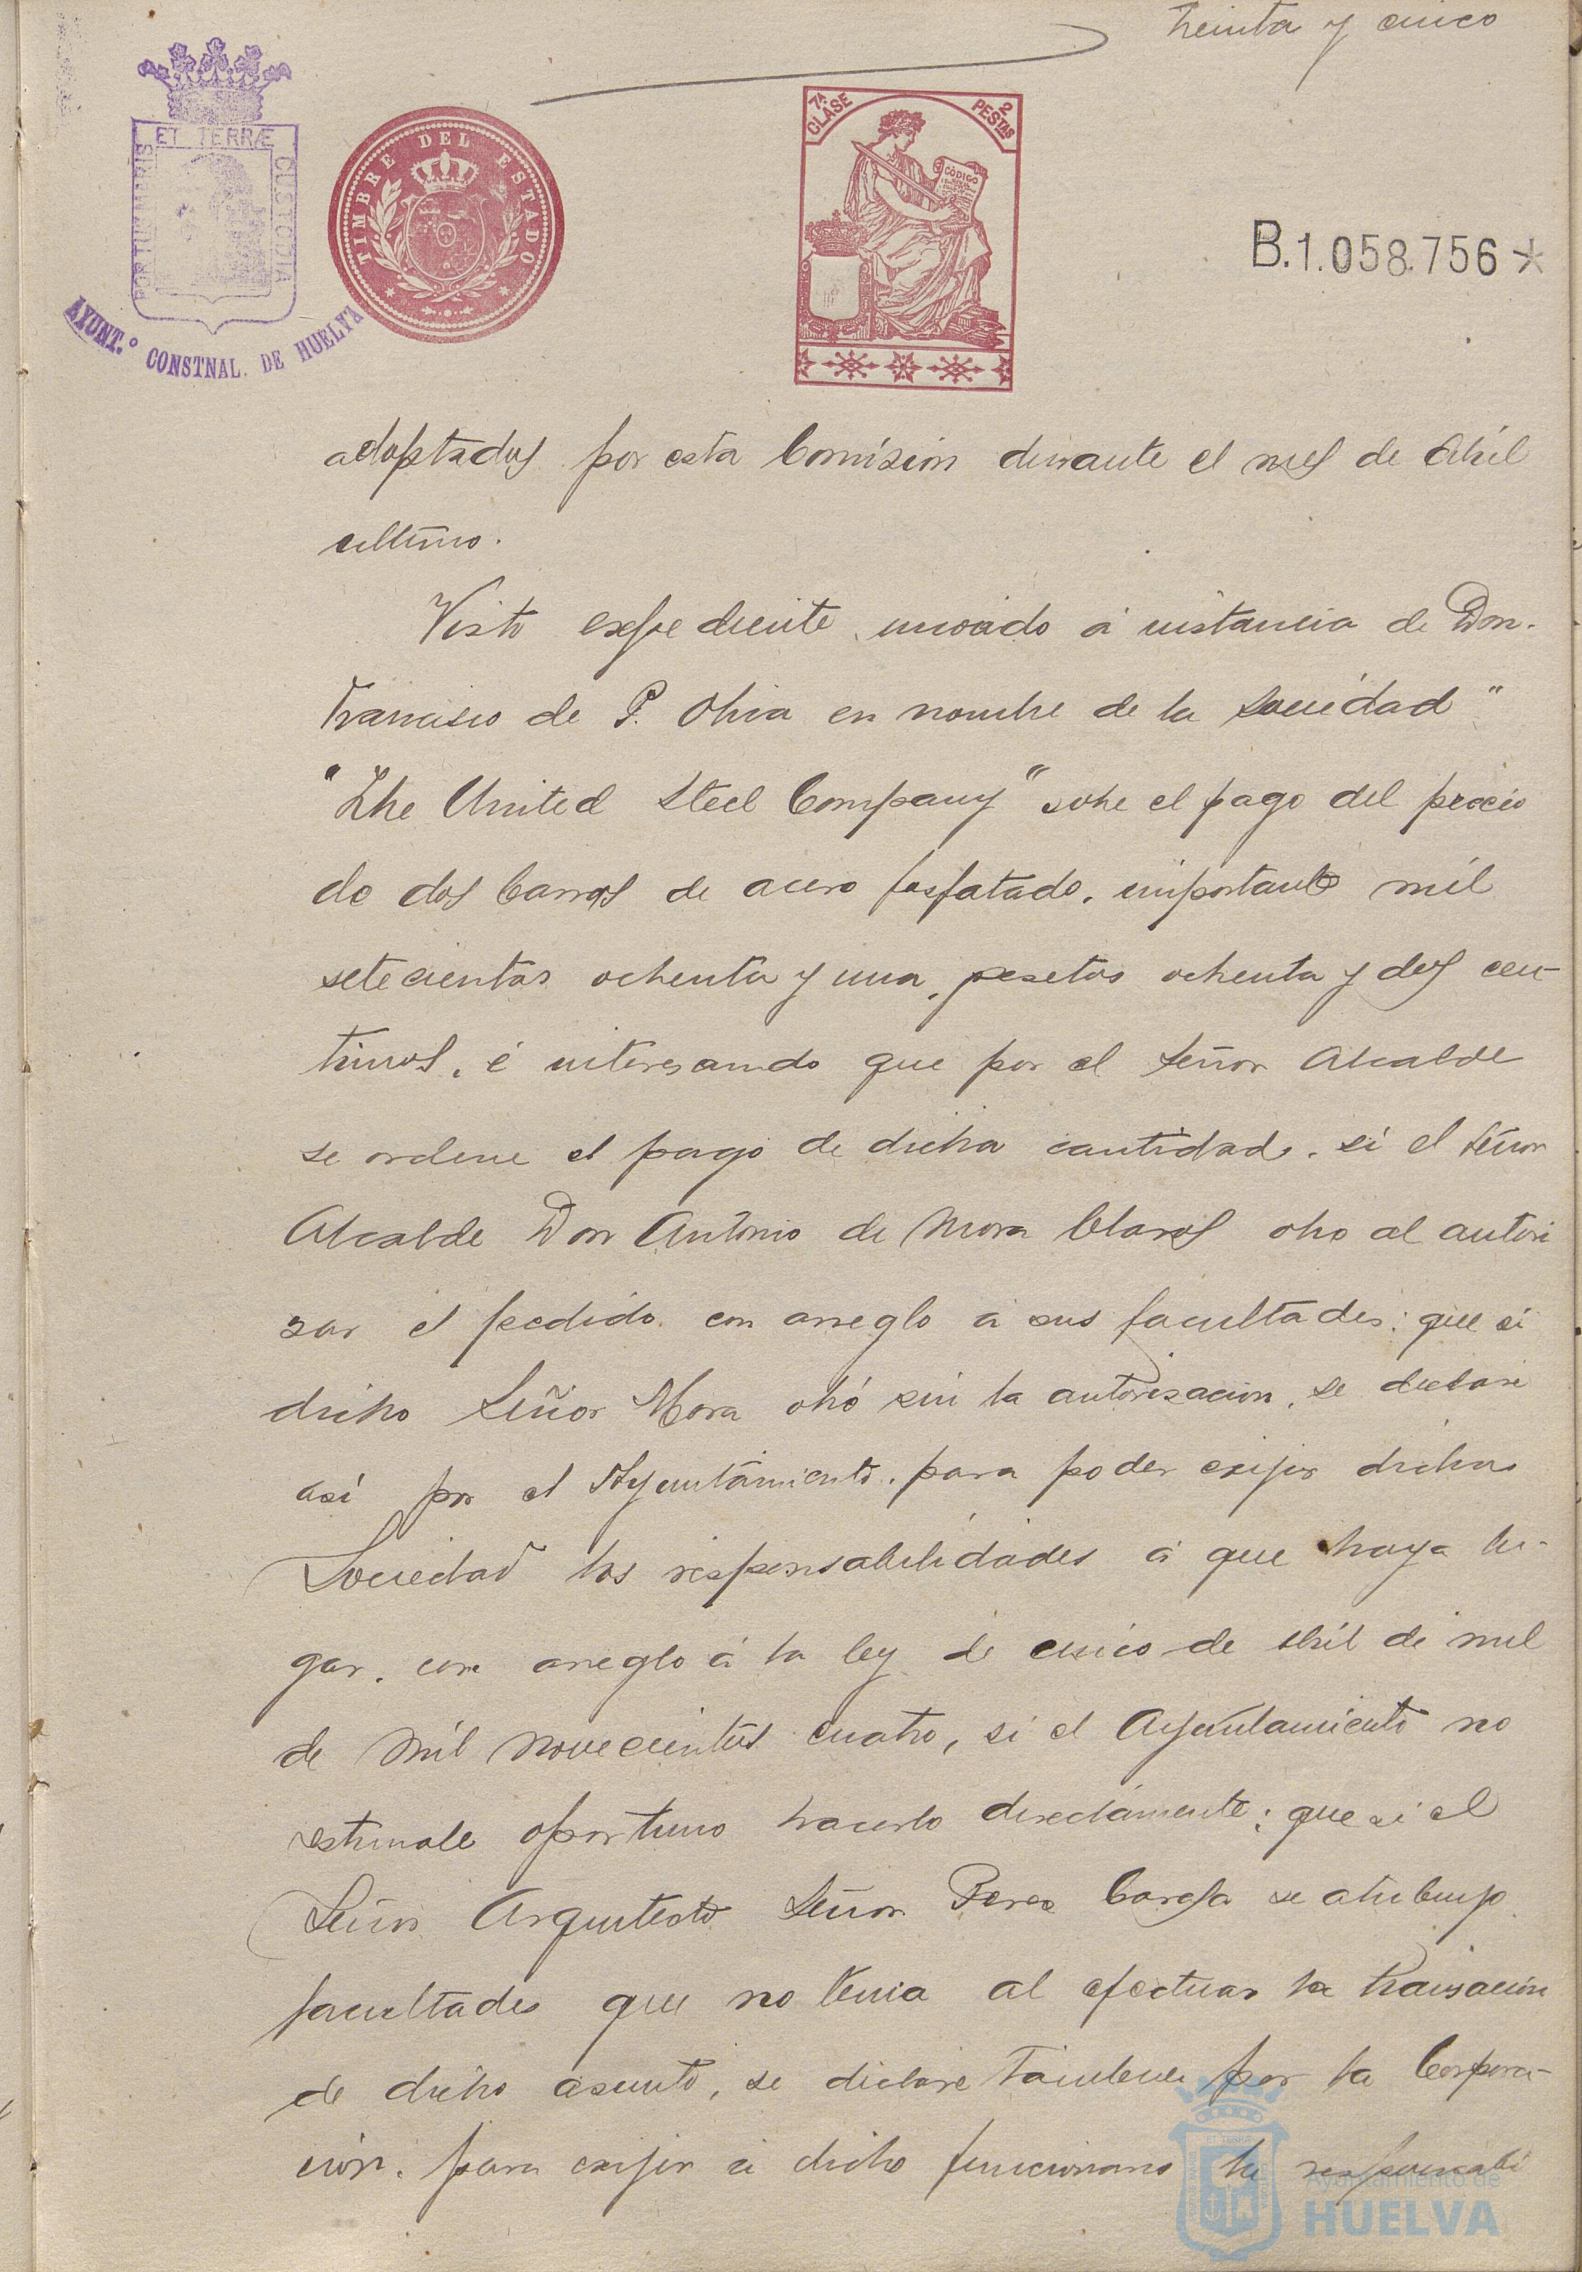 treinta y cinco
ET TERRÆ
PORTUM MARIS
CUSTODIA
AYUNT.º CONSTNAL. DE HUELVA
TIMBRE DEL ESTADO
7ª CLASE
2 PESTAS
CÓDIGO
B.1.058.756*
adoptados por esta Comisión durante el mes de Abril
ultimo.
Visto expediente incoado á instancia de Don
Francisco de P. Oliva en nombre de la Sociedad "
"The United Steel Company" sobre el pago del precio
de dos barras de acero fosfatado, importante mil
setecientas ochenta y una, pesetas ochenta y dos cen-
timos, é interesando que por el Señor Alcalde
se ordene el pago de dicha cantidad, si el Señor
Alcalde Don Antonio de Mora Claros obro al autori
zar el pedido con arreglo a sus facultades; que si
dicho Señor Mora obró sin la autorizacion, se declare
asi por el Ayuntamiento, para poder exijir dicha
Sociedad las responsabilidades á que haya lu-
gar, con arreglo á la ley de cinco de Abril de mil
de mil novecientos cuatro, si el Ayuntamiento no
estimale oportuno hacerlo directamente; que si el
Señor Arquitecto Señor Perez Carasa se atribuyo
facultades que no tenia al efectuar la transacion
de dicho asunto, se declare tambien por la Corpora-
ción, para exijir á dicho funcionario la responsabi
Ayuntamiento de
HUELVA